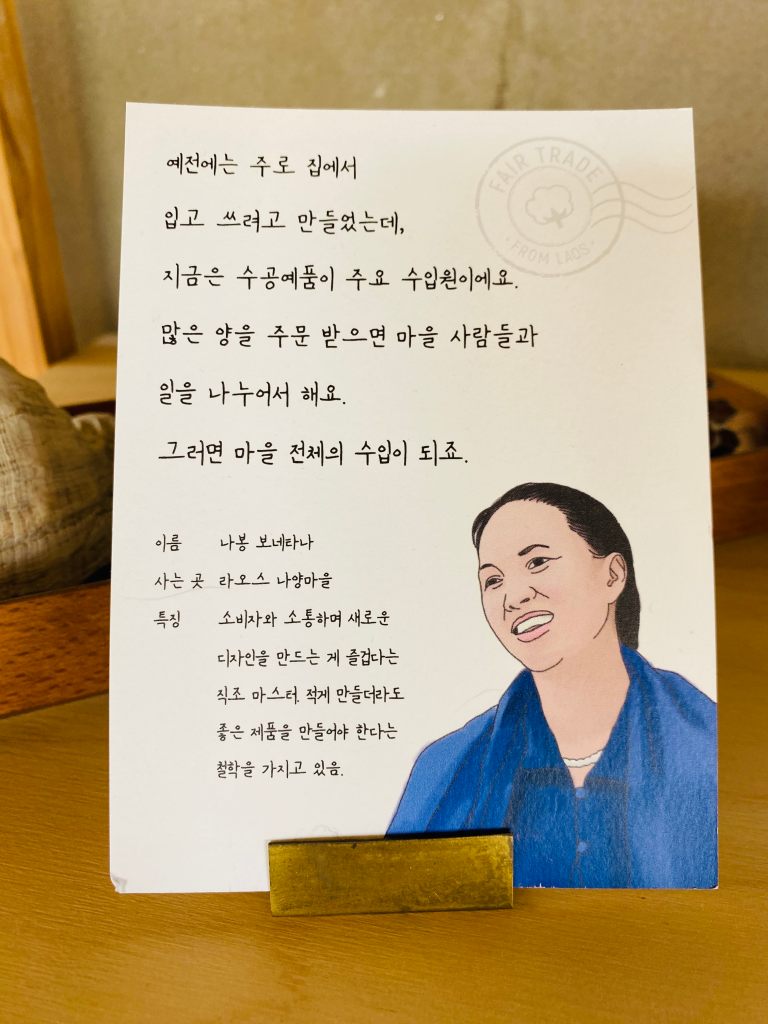 예전에는 주로 집에서
입고 쓰려고 만들었는데,
지금은 수공예품이 주요 수입원이에요.
많은 양을 주문 받으면 마을 사람들과
일을 나누어서 해요.
그러면 마을 전체의 수입이 되죠.
FAIR TRADE
·FROM LAOS·
이름 나봉 보네타나
사는 곳 라오스 나양마을
특징 소비자와 소통하며 새로운
디자인을 만드는 게 즐겁다는
직조 마스터. 적게 만들더라도
좋은 제품을 만들어야 한다는
철학을 가지고 있음.